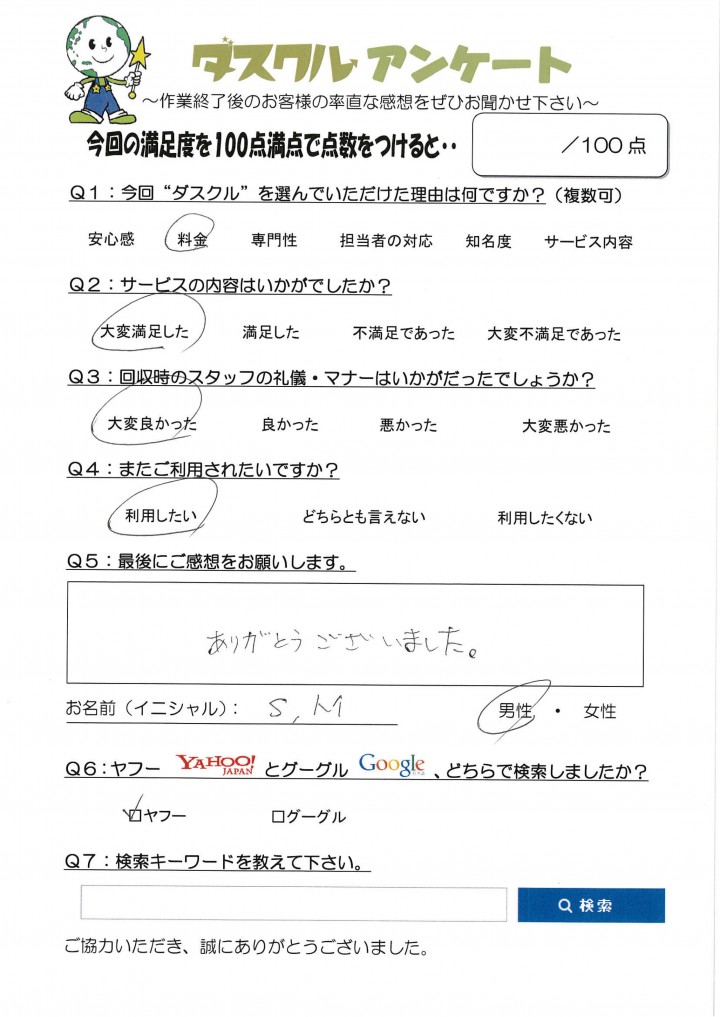 ダスクル アンケート
～作業終了後のお客様の率直な感想をぜひお聞かせ下さい～
今回の満足度を100点満点で点数をつけると・・ ／100 点
Q1：今回“ダスクル”を選んでいただけた理由は何ですか？（複数可）
安心感 料金 専門性 担当者の対応 知名度 サービス内容
Q2：サービスの内容はいかがでしたか？
大変満足した 満足した 不満足であった 大変不満足であった
Q3：回収時のスタッフの礼儀・マナーはいかがだったでしょうか？
大変良かった 良かった 悪かった 大変悪かった
Q4：またご利用されたいですか？
利用したい どちらとも言えない 利用したくない
Q5：最後にご感想をお願いします。
ありがとうございました。
お名前（イニシャル）： S,M 男性 ・ 女性
Q6：ヤフー YAHOO! JAPAN とグーグル Google 、どちらで検索しましたか？
☑ヤフー □グーグル
Q7：検索キーワードを教えて下さい。
検索
ご協力いただき、誠にありがとうございました。